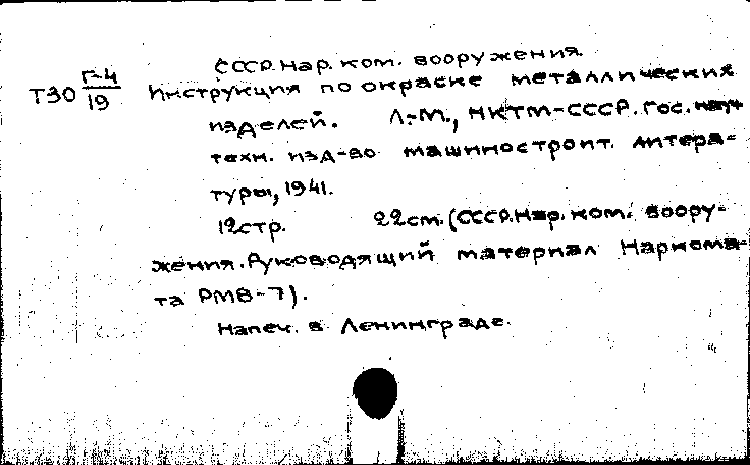 СССР. Нар. ком. вооружения.
Т30 Г-4/19 Инструкция по окраске металлических
изделей. Л.-М., НКТМ-СССР. Гос. науч
техн. изд-во машиностроит. литера-
туры, 1941.
12 стр. 22 см. (СССР. Нар. ком. воору-
жения. Руководящий материал Наркома-
та РМВ-7).
Напеч. в Ленинграде.